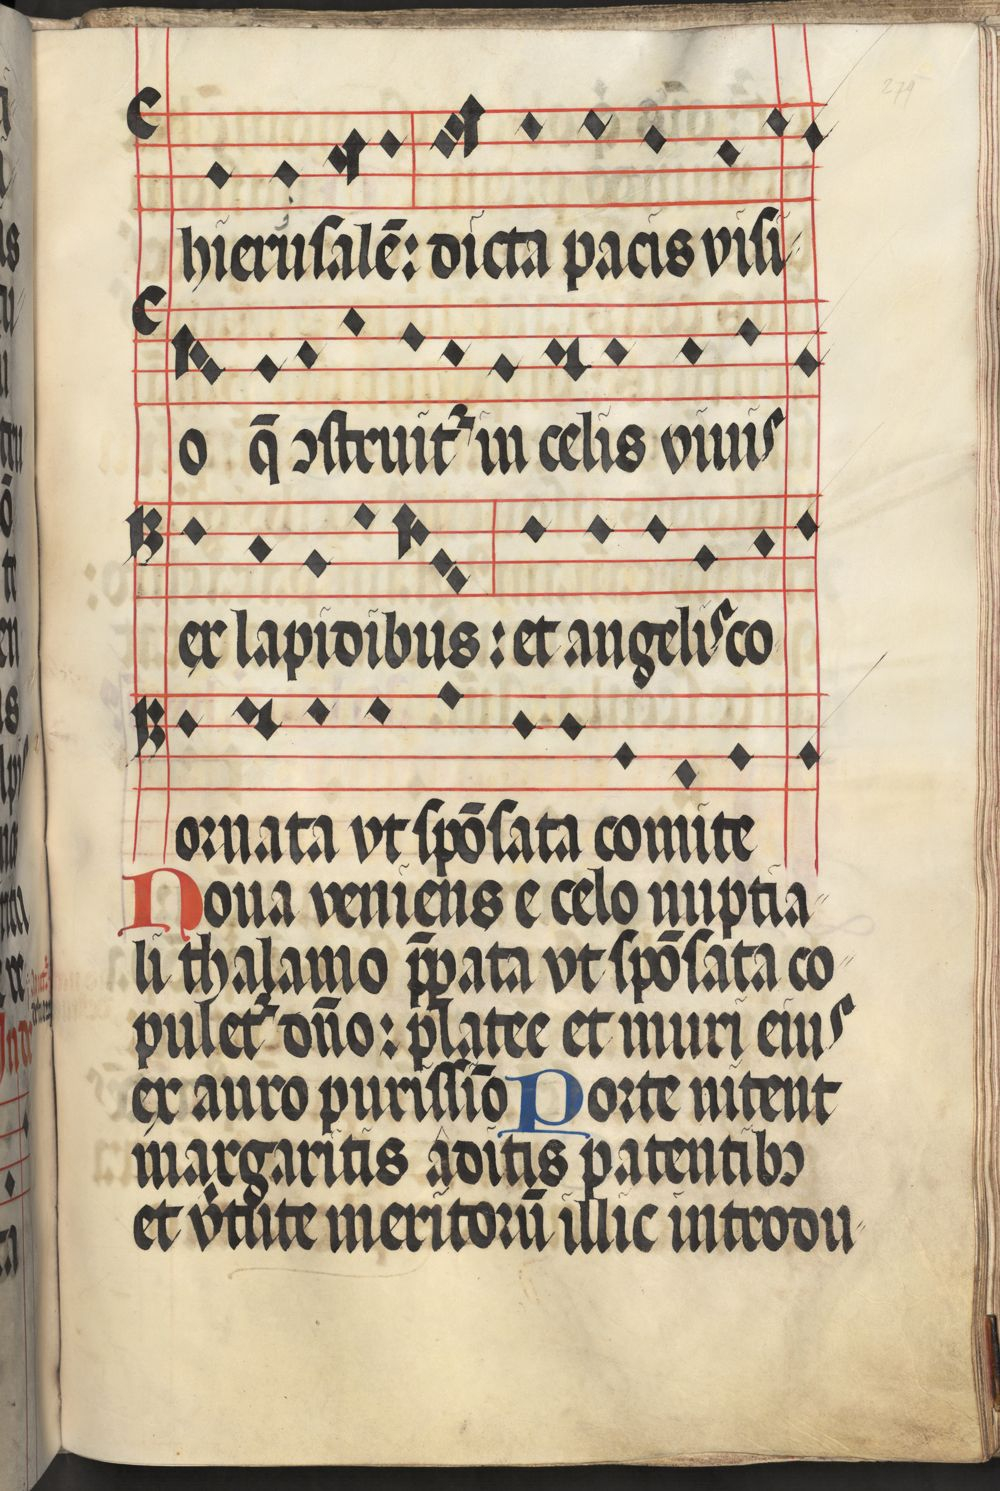 279
hierusalē: dicta pacis visi-
o q̄ ɔstruit᷑ in celis viuis
ex lapidibus: et angelis co
ornata vt spōsata comite
Noua veniens e celo nuptia-
li thalamo p̄parata vt spōsata co-
pulet᷑ dn̄o: platee et muri eius
ex auro purissīo Porte nitent
margaritis aditis patentibꝫ
et v̓tute meritorū illic introdu-